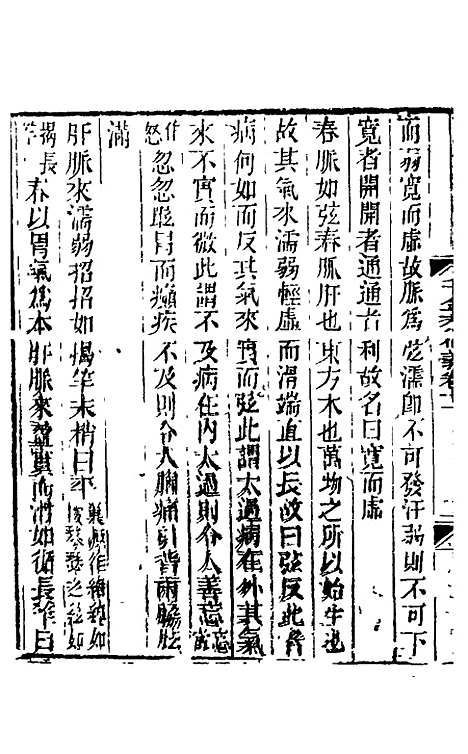 千金方衍義卷十一
而弱寬而虛故脈爲弦濡卽不可發汗弱則不可下
寬者開開者通通者利故名曰寬而虛
春脈如弦春脈肝也東方木也萬物之所以始生也
故其氣來濡弱輕虛而滑端直以長故曰弦反此者
病何如而反其氣來實而弦此謂太過病在外其氣
來不實而微此謂不及病在內太過則令人善忘忘當
作怒忽忽眩冒而癲疾不及則令人胸痛引背兩脇胠
滿
肝脈來濡弱招招如揭竿末梢曰平巢源作綽綽如
揭長竿春以胃氣爲本肝脈來盈實而滑如循長竿曰